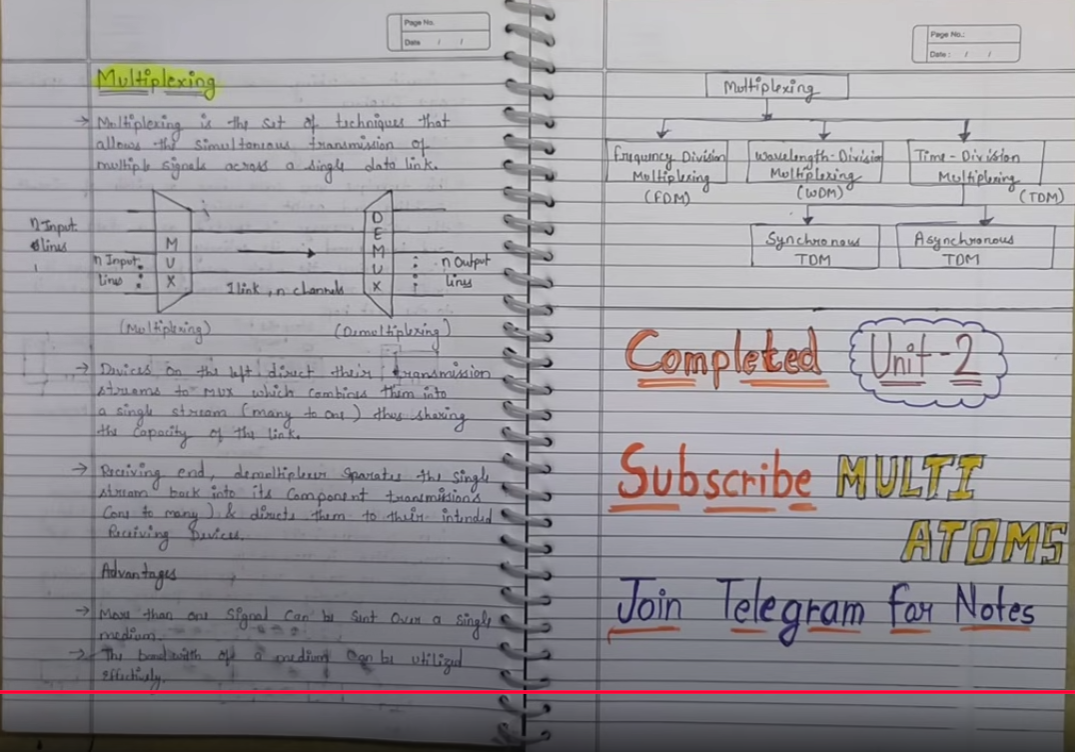 Page No.
Date / /
Multiplexing
→ Multiplexing is the set of techniques that
allows the simultaneous transmission of
multiple signals across a single data link.
n Input
lines
n Input
lines
MUX
1 link, n channels
DEMUX
n Output
lines
(Multiplexing) (Demultiplexing)
→ Devices on the left direct their transmission
streams to MUX which combines them into
a single stream (many to one) thus sharing
the capacity of the link.
→ Receiving end, demultiplexer sparates the single
stream back into its component transmissions
(one to many) & directs them to their intended
Receiving Devices.
Advantages
→ More than one signal can be sent over a single
medium.
→ The bandwith of a medium can be utilized
effectively.
Page No.:
Date: / /
Multiplexing
Frequency Division
Multiplexing
(FDM)
Wavelength-Division
Multiplexing
(WDM)
Time-Division
Multiplexing
(TDM)
Synchronous
TDM
Asynchronous
TDM
Completed Unit-2
Subscribe MULTI
ATOMS
Join Telegram for Notes